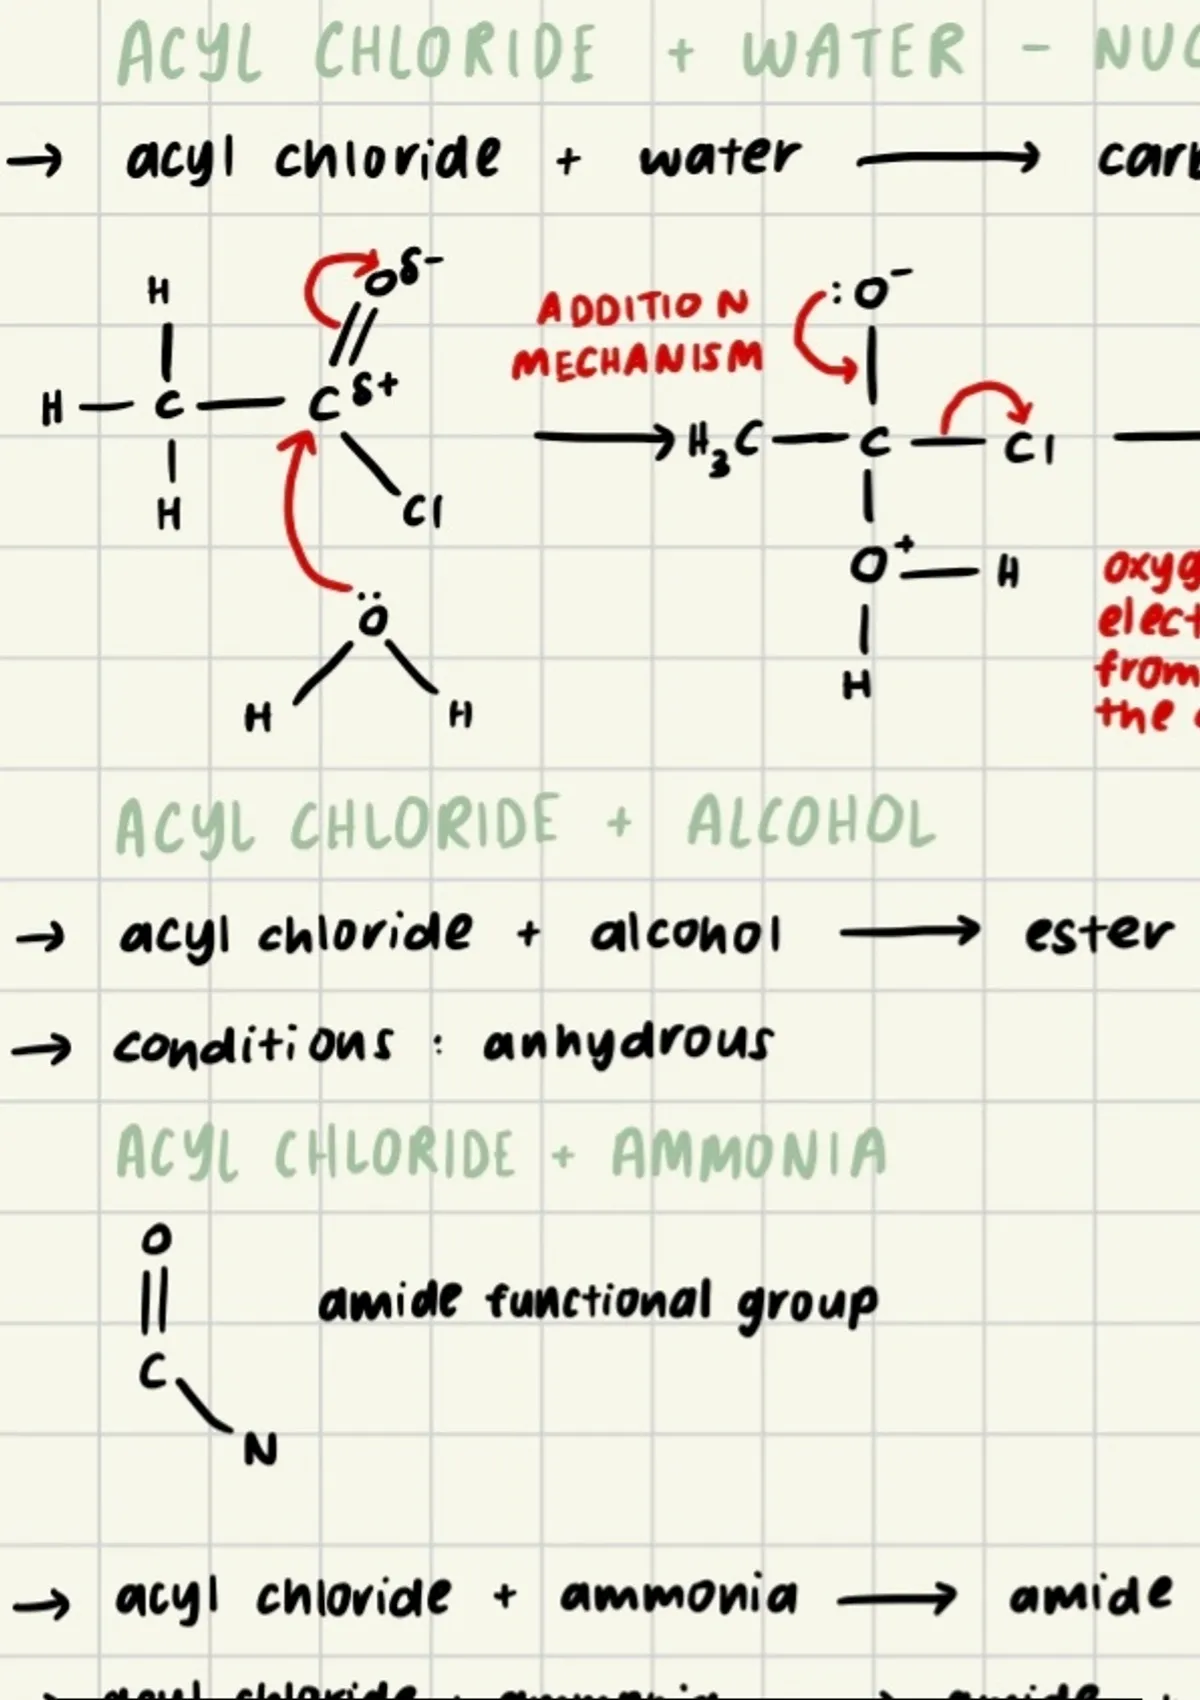 ACYL CHLORIDE + WATER - NUC
→ acyl chloride + water → carb
H
H — C — C δ+
O δ-
H
Cl
Ö
H H
ADDITION
MECHANISM
→ H3C — C — Cl →
:O⁻
O⁺ — H
H
oxyg
elect
from
the
ACYL CHLORIDE + ALCOHOL
→ acyl chloride + alcohol → ester
→ conditions : anhydrous
ACYL CHLORIDE + AMMONIA
O
C
N
amide functional group
→ acyl chloride + ammonia → amide